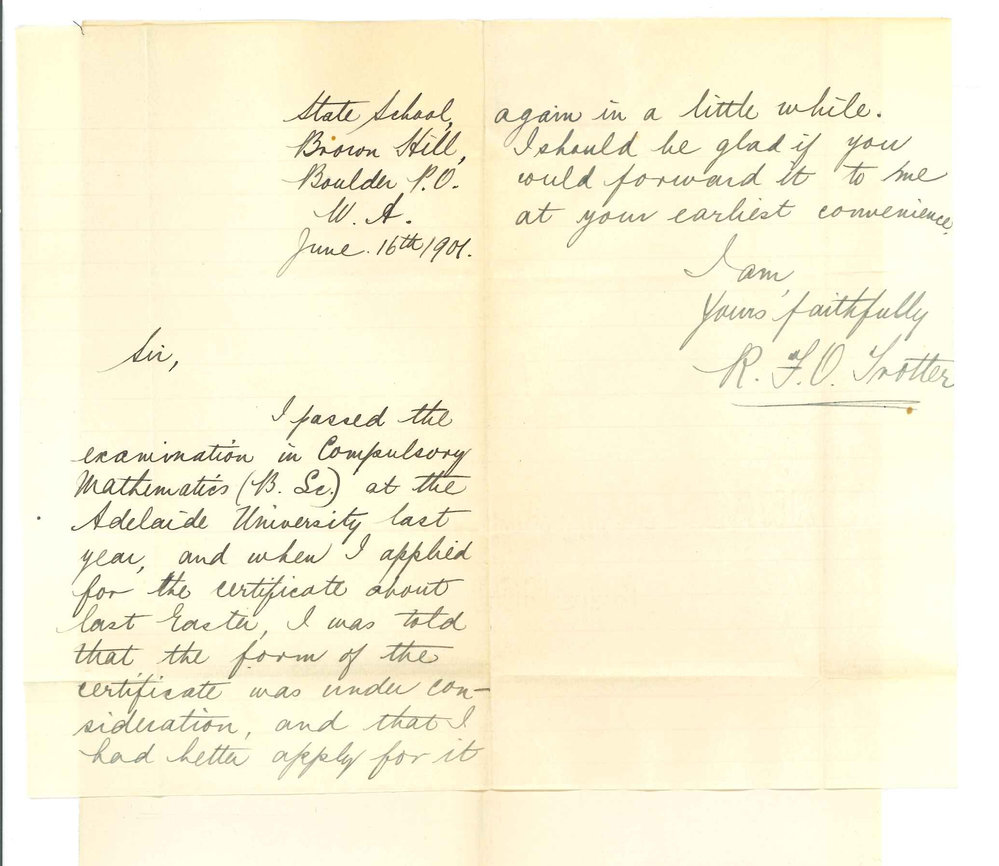 State School,
Brown Hill,
Boulder P.O.
W. A.
June. 16th 1901.
Sir,
I passed the
examination in Compulsory
Mathematics (B. Sc.) at the
Adelaide University last
year, and when I applied
for the certificate about
last Easter, I was told
that the form of the
certificate was under con-
sideration, and that I
had better apply for it
again in a little while.
I should be glad if you
would forward it to me
at your earliest convenience.
I am,
Yours faithfully
R. F. O. Trotter